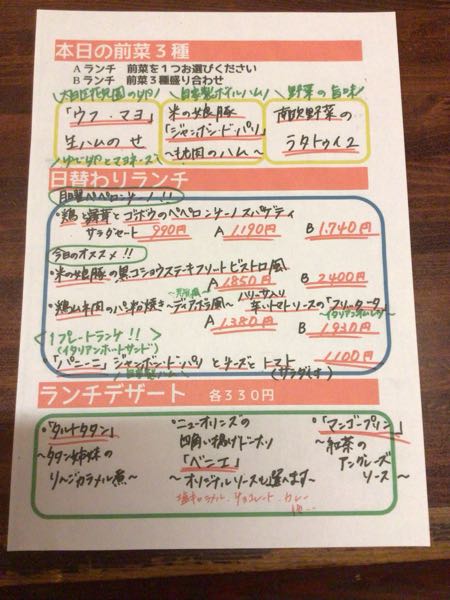 本日の前菜3種
Aランチ 前菜を1つお選びください
Bランチ 前菜3種盛り合わせ
自家製ボイルハム
野菜の旨味
「ウフ・マヨ」
生ハムのせ
ゆで卵とマヨネーズ
米の娘豚
「ジャンボン・ド・パリ」
〜もも肉のハム〜
南欧野菜の
ラタトゥイユ
日替わりランチ
ペペロンチーノ!!
・鶏と舞茸とゴボウのペペロンチーノスパゲティ
サラダセット 990円 A 1,190円 B 1,740円
今日のオススメ!!
・米の娘豚の黒コショウステーキフリット ビストロ風
A 1850円 B 2400円
・鶏ムネ肉のパン粉焼き〜ディアボラ風〜
辛いトマトソースの「フリッタータ」
〜イタリアンオムレツ〜
A 1,380円 B 1930円
1プレートランチ!!
(イタリアンホットサンド)
「パニーニ」ジャンボンドパリとチーズとトマト 1,100円
自家製ハム
(サラダ付き)
ランチデザート 各330円
・「タルトタタン」
〜タタン姉妹の
りんごカラメル煮〜
・ニューオリンズの
四角い揚げドーナツ
「ベニエ」
〜オリジナルソースも選べます〜
塩キャラメル、チョコレート、カレー
・「マンゴープリン」
〜紅茶の
アングレーズ
ソース〜